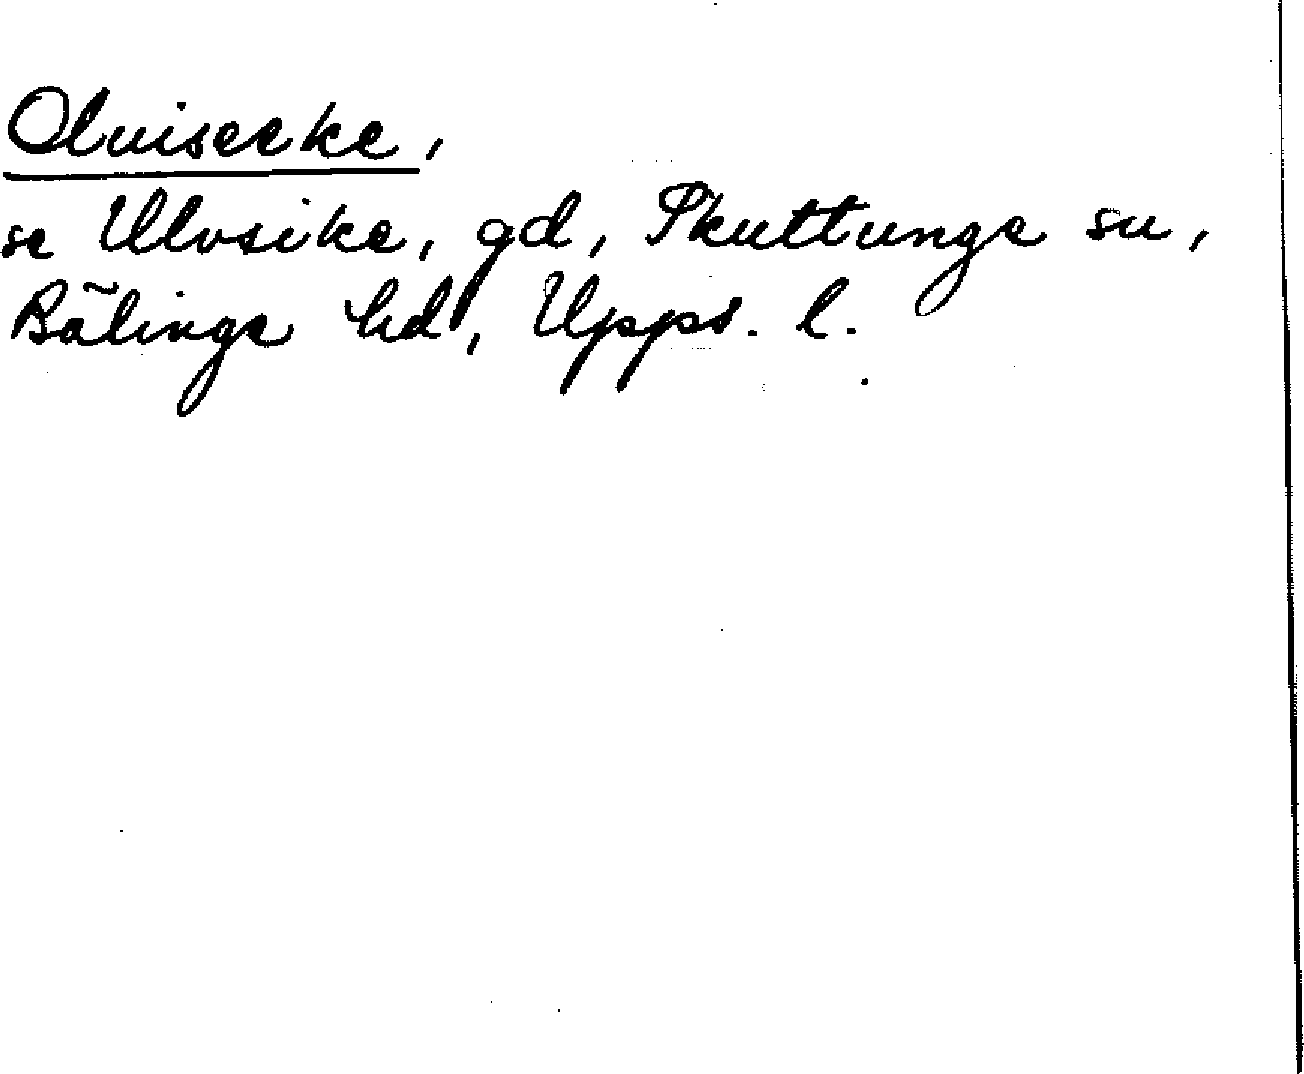 Oluiseeke,
se Ulvsike, gd, Skuttunge sn,
Bälinge hd, Upps. l.